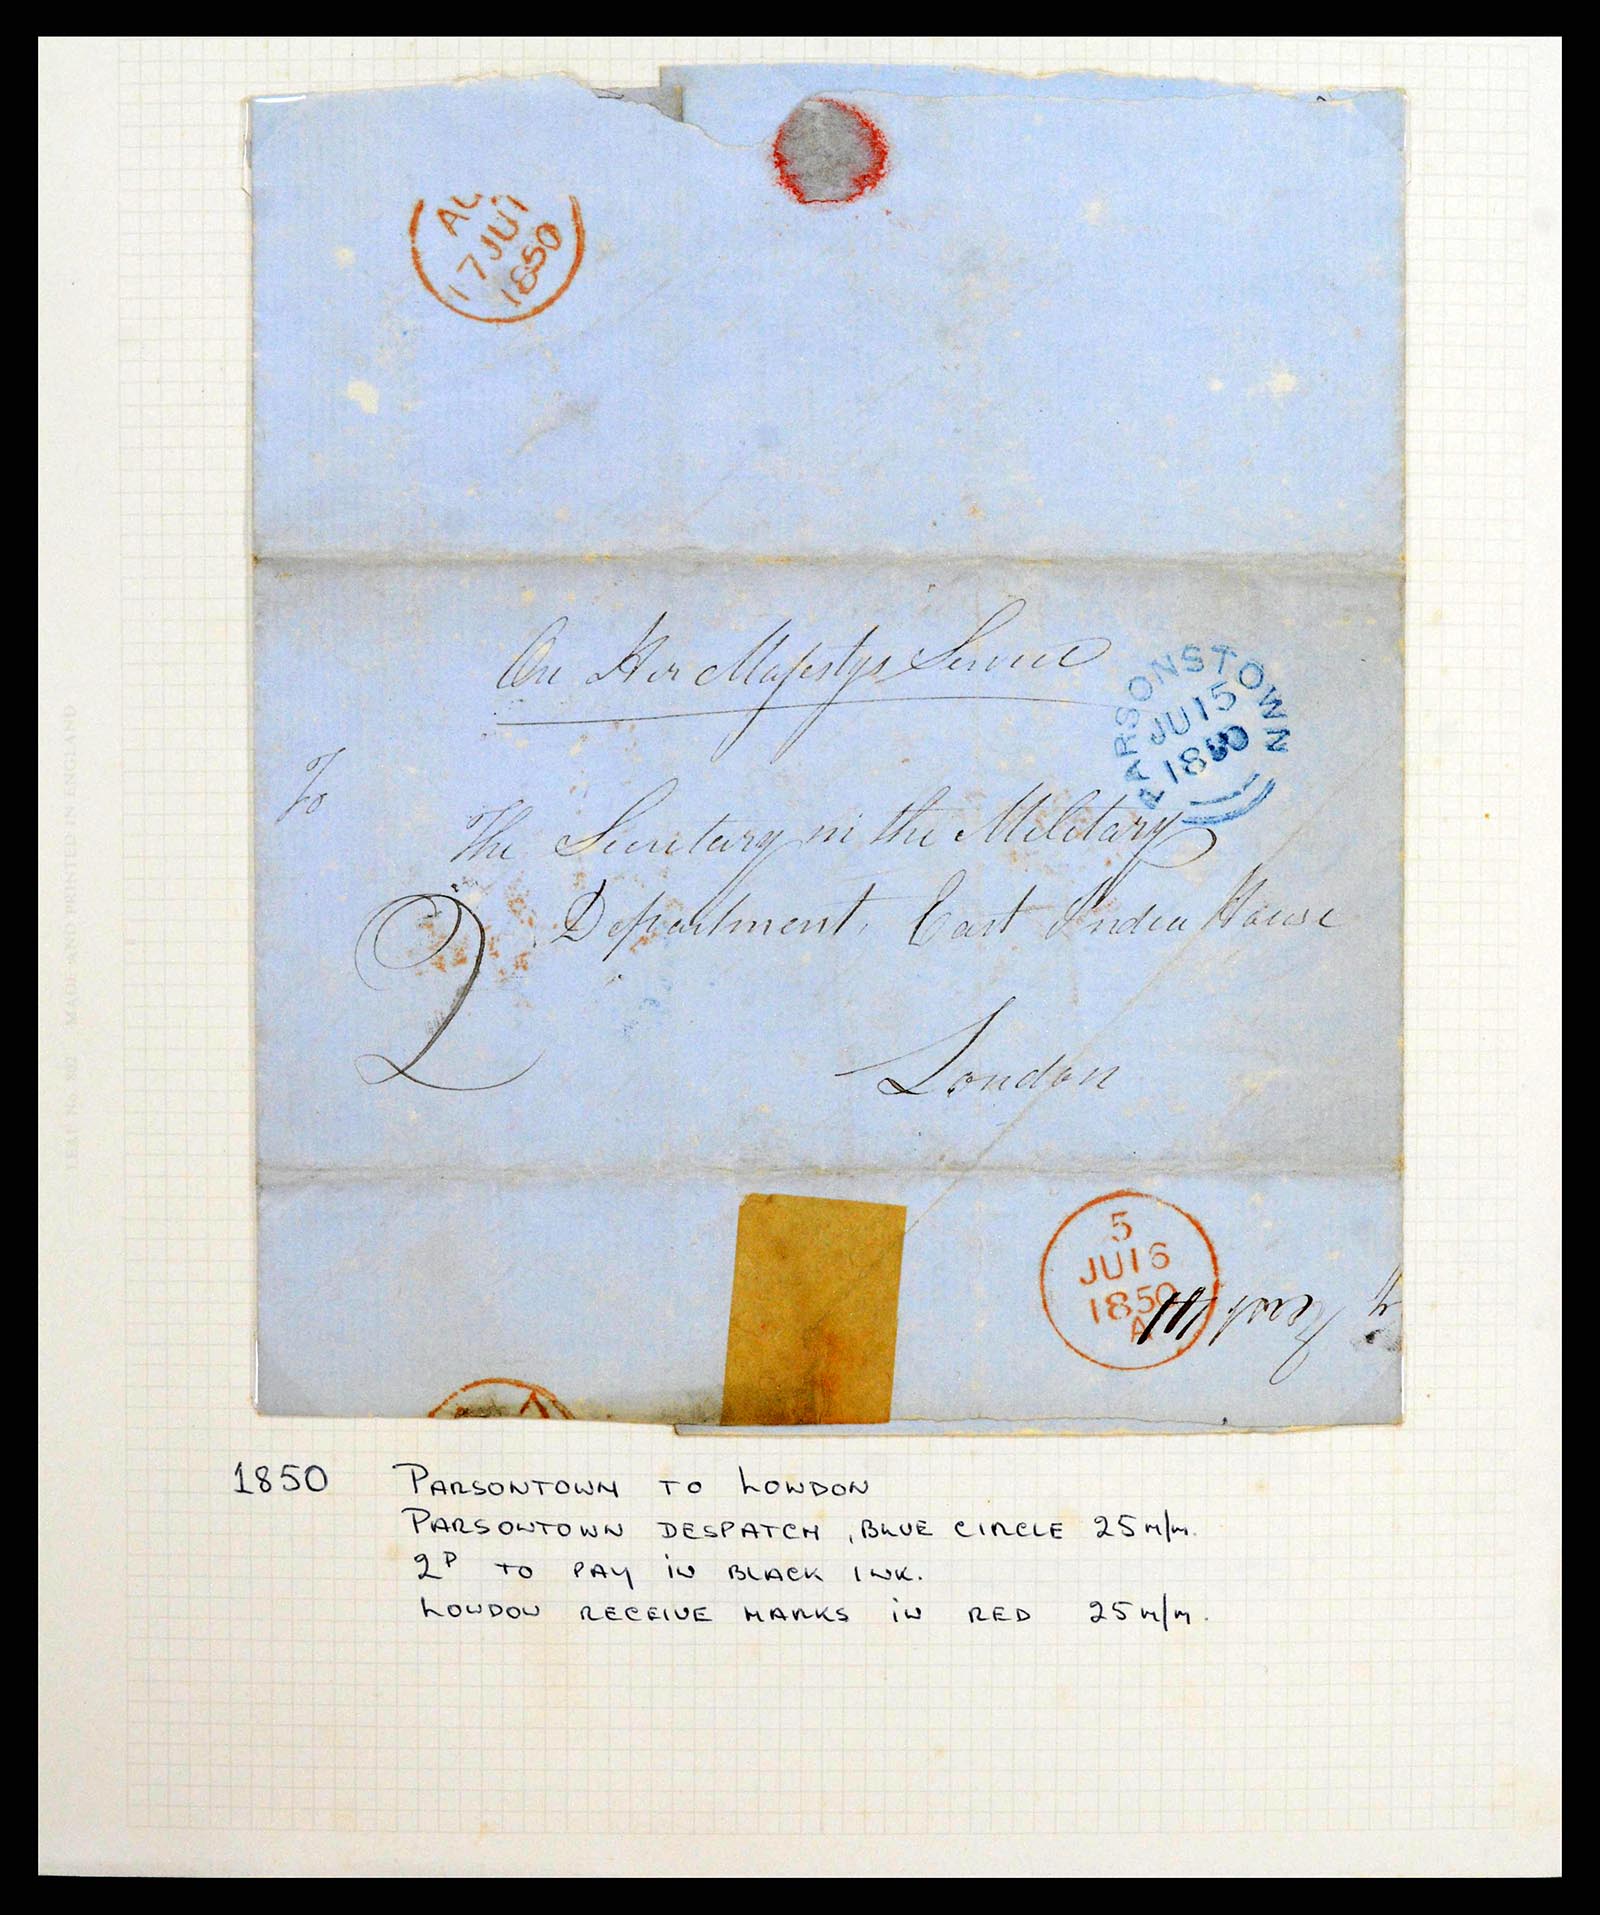 17 JU
1850
On Her Majestys Service
PARSONSTOWN
JU 15
1850
To
The Secretary in the Military
2
Department, East India House
London
5
JU 16
1850
A
1850 PARSONTOWN TO LONDON
PARSONTOWN DESPATCH, BLUE CIRCLE 25 M/M.
2P TO PAY IN BLACK INK.
LONDON RECEIVE MARKS IN RED 25 M/M.
MADE AND PRINTED IN ENGLAND